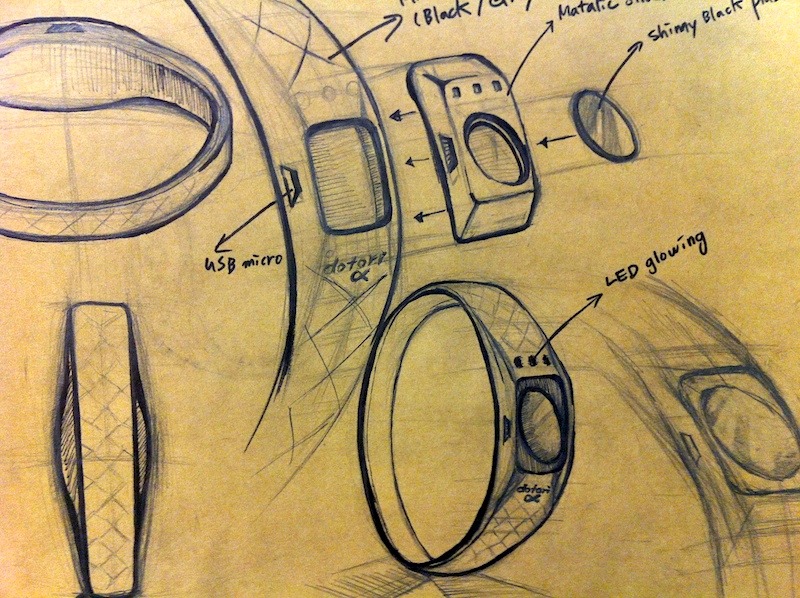 (Black/
Shiny Black
USB micro
dotori
α
LED glowing
dotori
α